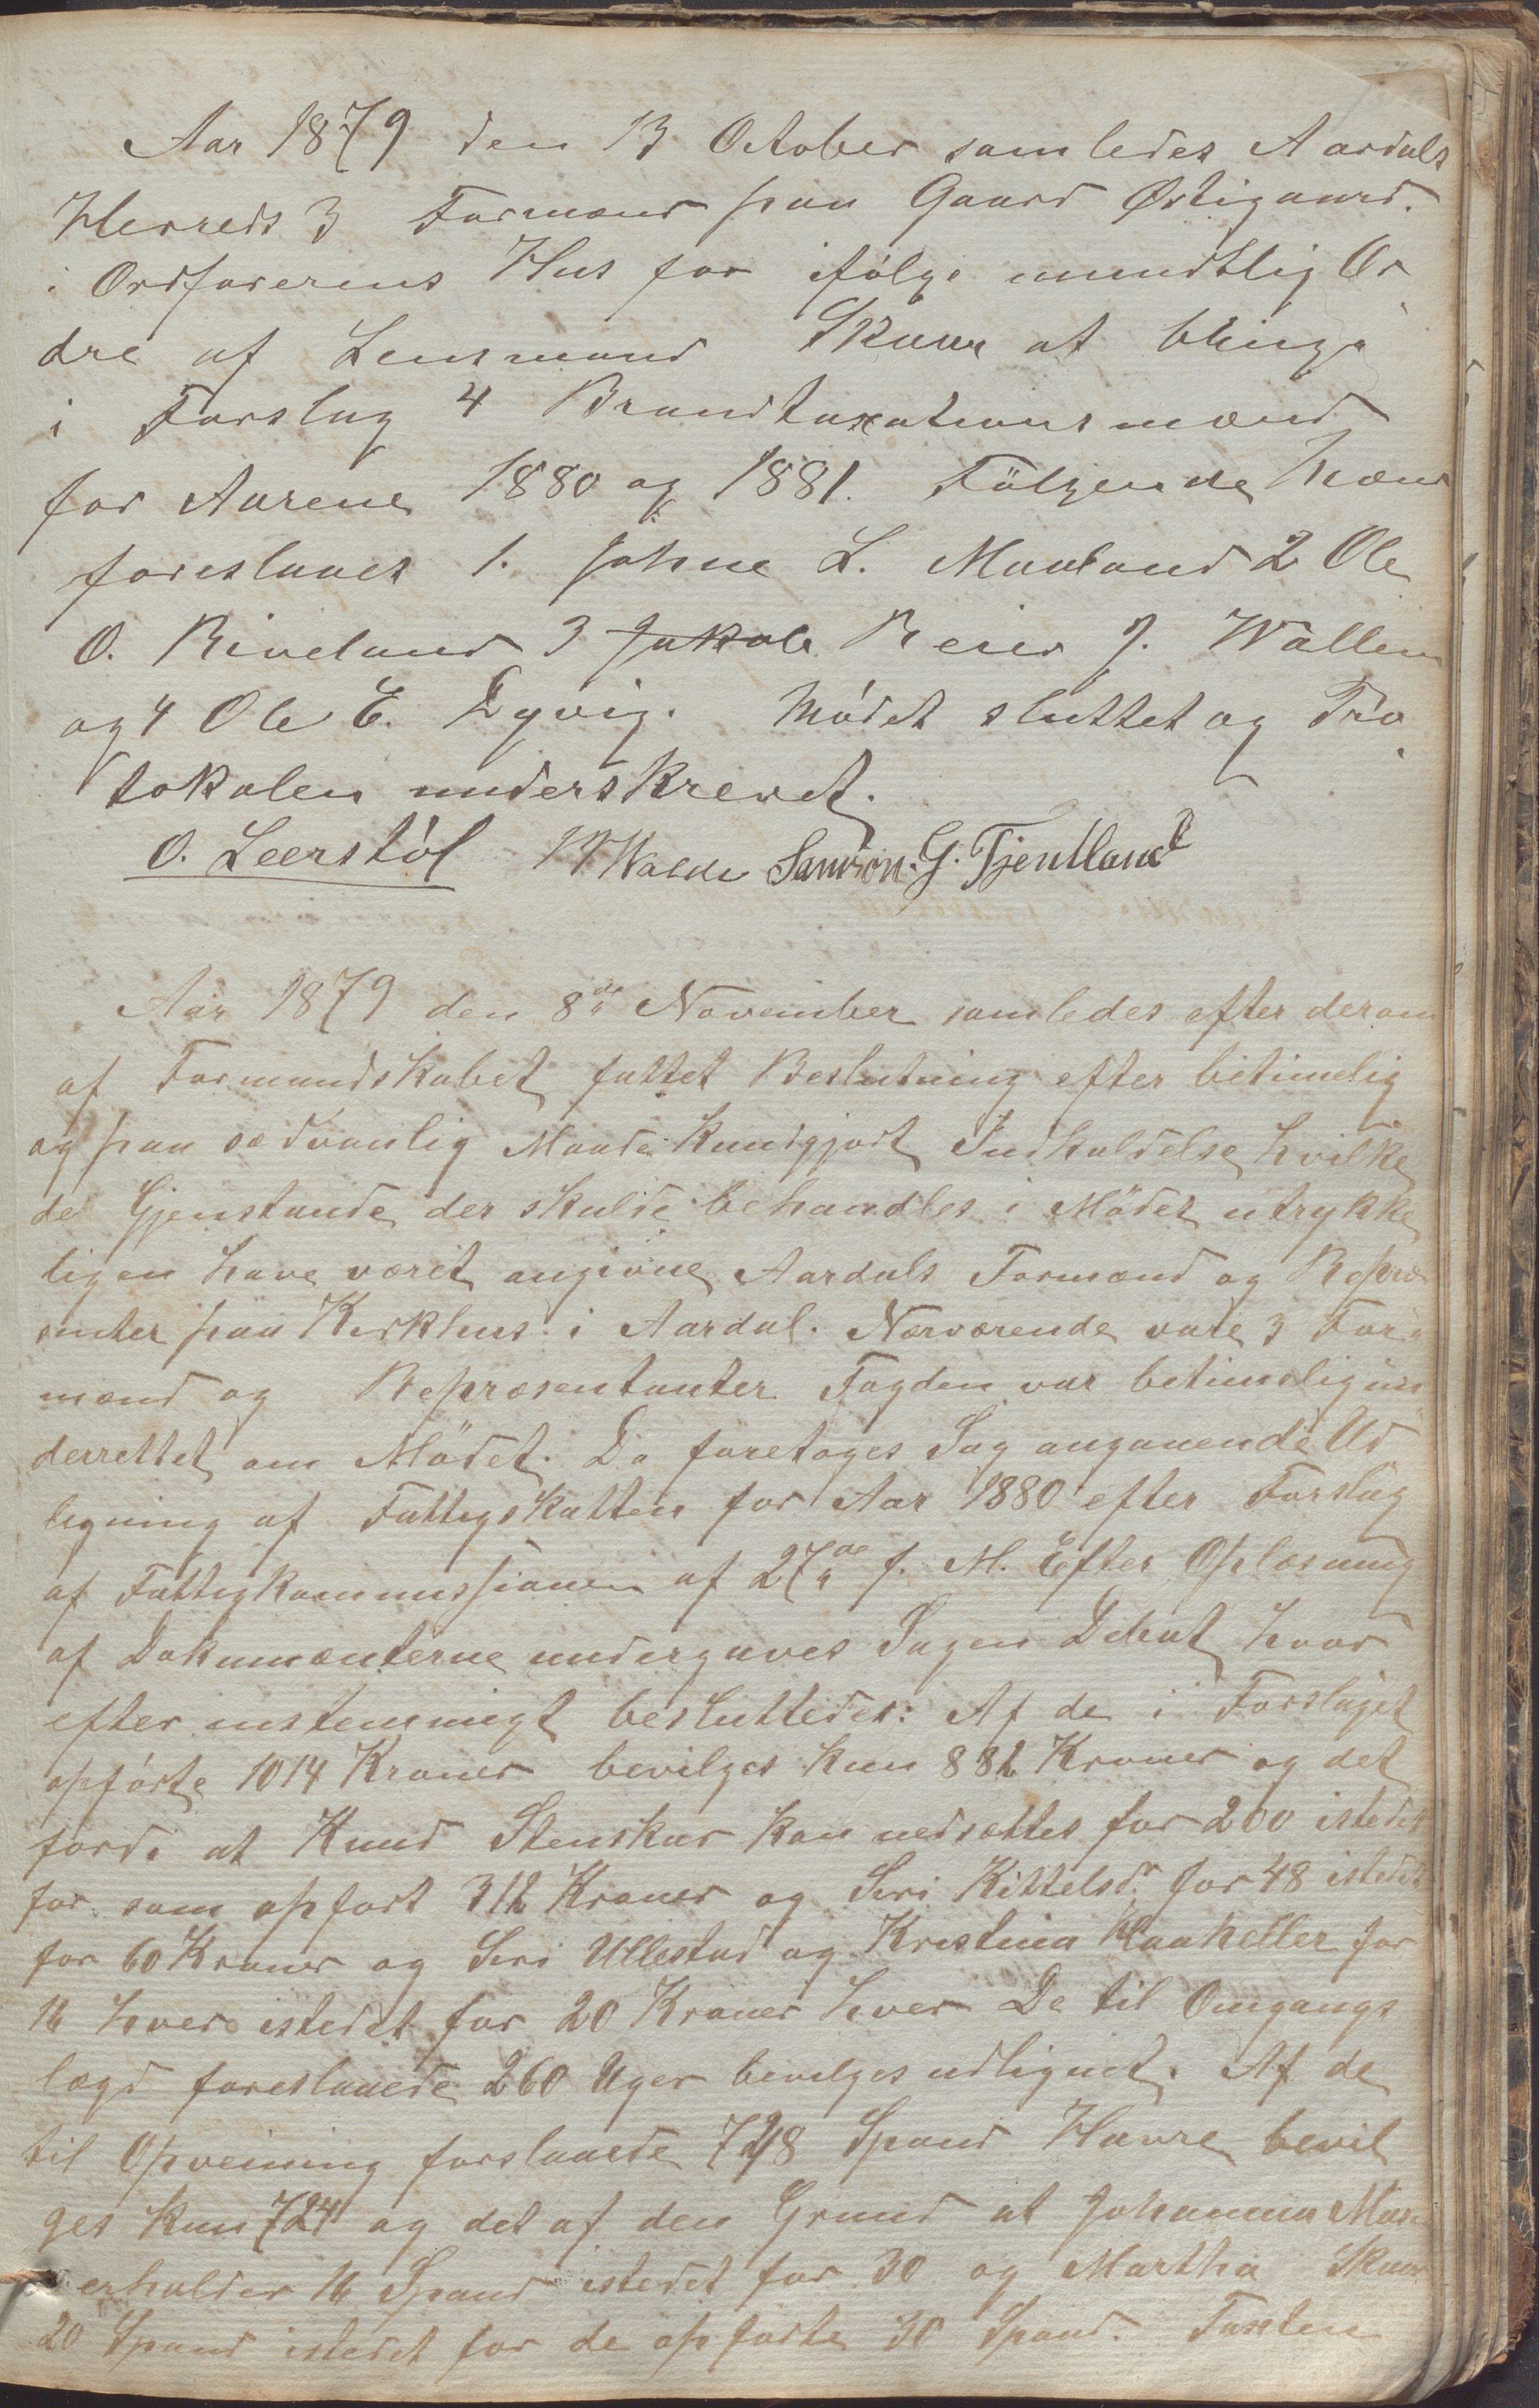 Aar 1879 den 13 October samledes Aardals
Herreds 3 Formænd paa Gaard Østigaard.
i Ordforerens Hus for ifølge mundtlig Or
dre af Lensmand Skaar at bringe
i Forslag 4 Brandtaxationsmænd
for Aarene 1880 og 1881. Følgende Mænd
foreslaaes 1. Johne L. Maaland 2 Ole
O. Riveland 3 Jakob Reier J. Wallem
og 4 Ole E. Dyvig. Mødet sluttet og Pro
tokolen underskrevet.
O. Leerstøl Walde Samson. G. Tjentland
Aar 1879 den 8de November samledes efter derom
af Formandskabet fattet Beslutning efter betimelig
og paa sædvanlig Maade kundgjort Indkaldelse hvilke
de Gjenstande der skulde behandles i Mødet utrykke
ligen have været angivne Aardals Formænd og Repræ
senter paa Kirkhus i Aardal. Nærværende vare 3 For
mænd og Repræsentanter Fogden var betimelig un
derrettet om Mødet. Da foretoges Sag angaaende Ud
ligning af Fattigskatten for Aar 1880 efter Forslag
af Fattigkommissionen af 27de f. M. Efter Oplæsning
af Dokumænterne undergaves Sagen Debat hvor
efter enstemmigt besluttedes: Af de i Forslaget
opførte 1014 Kroner bevilges kun 882 Kroner og det
fordi at Knud Stenskar kan nedsættes for 200 istedet
for som opført 312 Kroner og Siri Kittelsdr for 48 istedet
for 60 Kroner og Siri Ullestad og Kristina Haaheller for
16 hver istedet for 20 Kroner hver De til Omgangs
lægd foreslaaede 260 Uger bevilges udlignet. Af de
til Opveining forslaaede 748 Spand Havre bevil
ges kun 724 og det af den Grund at Johanna
erholder 16 Spand istedet for 30 og Martha Skaar
20 Spand istedet for de opførte 30 Spand. Taxten